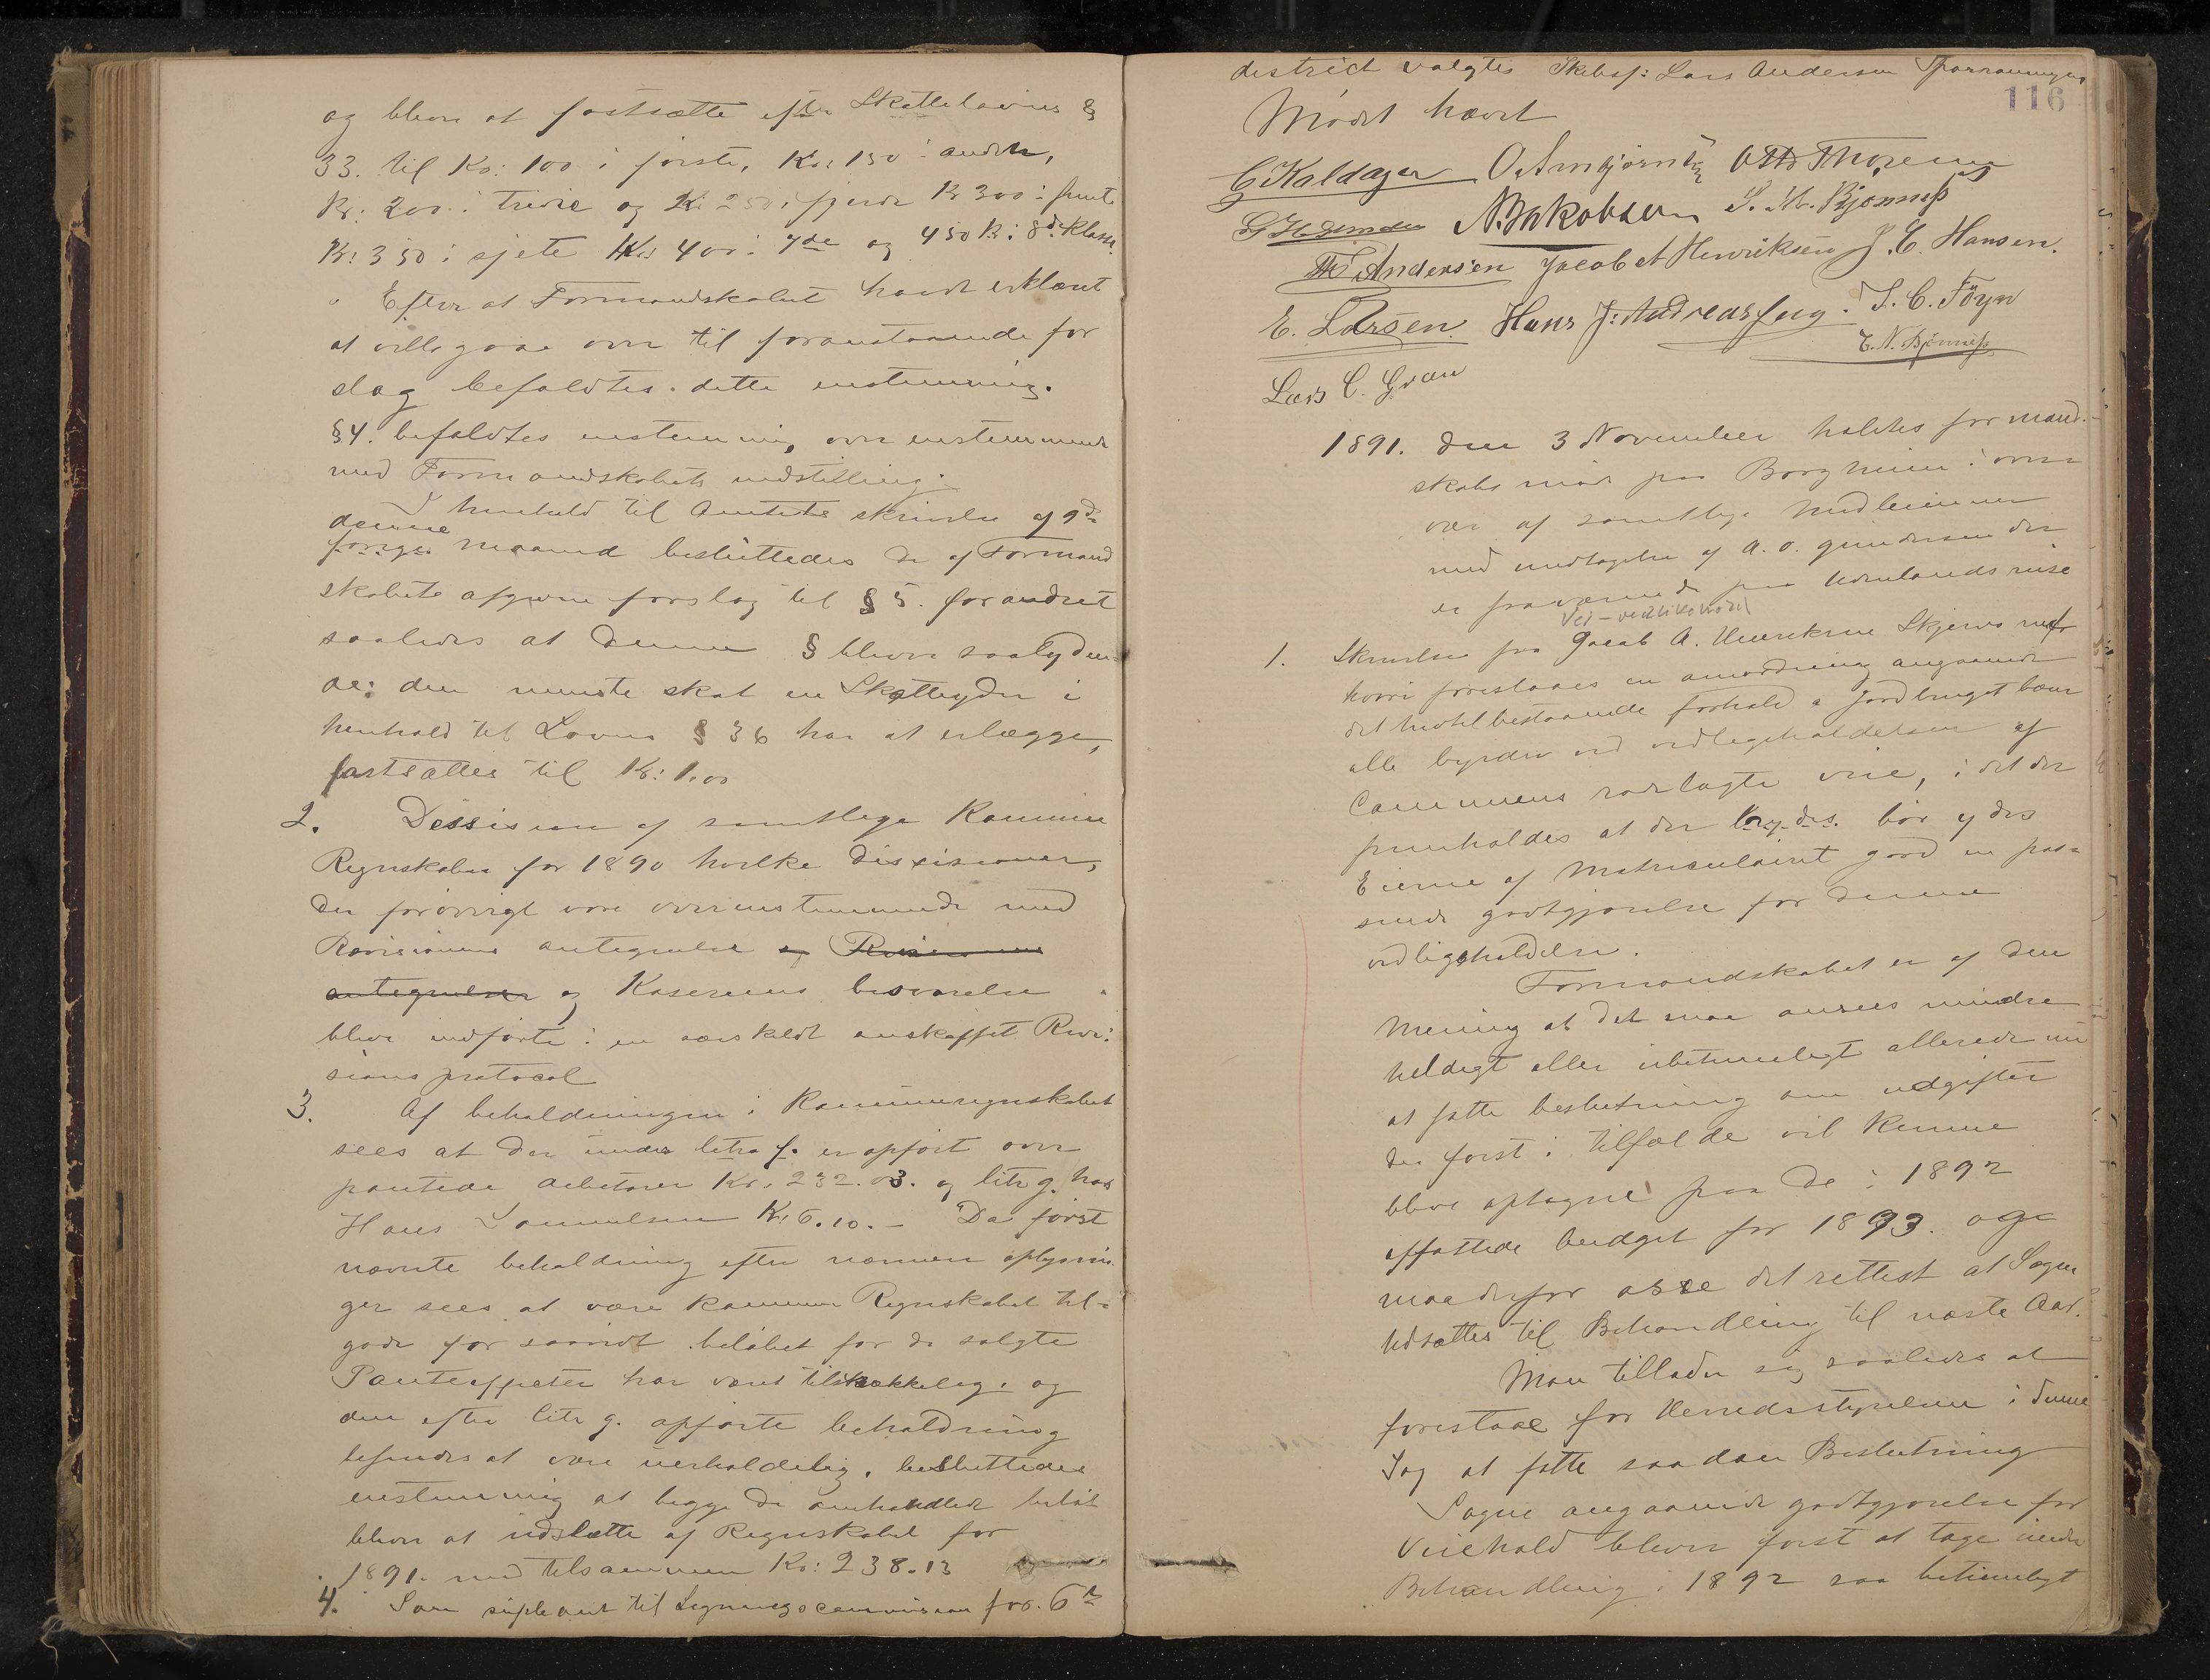 og bliver at fastsætte efter Skattelovens §
33. til Kr: 100 i förste, Kr: 150 i anden,
Kr: 200 i tredie og Kr 250 i fjerde Kr 300 i femte
Kr: 350 i sjete Kr: 400 i 7de og 450 Kr i 8de Klasse.
Efter at Formandskabet havde erklæret
at ville gaae over til foranstaaende for
slag befaldtes dette enstemmig.
§4. befaldtes enstemmig, overenstemmende
med Formandskabets indstilling.
I henhold til Amtets skrivelse af 9de
denne
forige maaned besluttedes de af Formand
skabets afgivne forslag til § 5. forandret
saaledes at denne § bliver saalyden-
de: den mindste skat en Skatteyder i
henhold til Lovens § 36 har at erlægge,
fastsættes til Kr: 1.00
2. Dessision af samtlige Kommune
Regnskaber for 1890 hvilke Discisioner,
der forövrigt vare overenstemmende med
Revisionens antegnelse og Revisionens
antegnelser og Kasererens besvarelse
blive indförte i en særskildt anskaffet Revi-
sions protocol
3. Af beholdningen i Kommuneregnskabet
sees at der under litra f. er opfört over
pantede debitorer Kr. 232.03. og litr g. hos
Hans Samuelsen Kr: 6.10. – Da först
nævnte beholdning efter nærmere oplysnin-
ger sees at være Kommune Regnskabet til-
gode for saavidt belöbet for de solgte
Panteeffecter har været tilstrækkelig. og
den efter litr g. opförte beholdning
befindes at være uerholdelig, besluttedes
enstemmig at begge de omhandlede belöb
bliver at udslette af Regnskabet for
1891. med tilsammen Kr: 238.13
4. Som supleant til Ligningscommission for 6te
district valgtes Skibsf: Lars Andersen
116
Mödet hævet
G Kaldager O. Arnbjörnsen Otto Thoresen
N. Jakobsen S. M. Bjönnes
Andersen Jacob A Henriksen J. C. Hansen.
E. Larsen. Hans J: Andreassen. J. C. Föyn
E. N. Bjönnes
Lars C. Gran
1891. den 3 November holdtes formand-
skabs möde paa Borgheim i over
vær af samtlige Medlemmer
med undtagelse af A. O. Gundersen der
er fraværende paa Udenlandsreise
Vei-vedlikehold
1. Skrivelse fra Jacob A. Henriksen Skjerve
hvori foreslaaes en anordning angaaende
det hidtilbestaaende forhold a Jordbruget bærer
alle byrder ved vedligeholdelsen af
Communens rodelagte veie, i det der
fremholdes at der bör ydes
Eierne af Matriculeret jord en pas-
sende godtgjörelse for denne
vedligeholdelse.
Formandskabet er af den
Mening at det maa ansees mindre
heldigt eller ubetimeligt allerede nu
at fatte beslutning om udgifter
der först i tilfælde vil kunne
blive optagne paa de i 1892
affattede budget for 1893. og
maa derfor ansee det rettest at Sagen
Udsættes til Behandling til næste Aar.
Man tillader sig saaledes at
forestaae for Herredsstyrelsen i denne
Sag at fatte saadan Beslutning
Sagen angaaende godtgjörelse for
Veiehold bliver först at tage under
Behandling i 1892 saa betimeligt